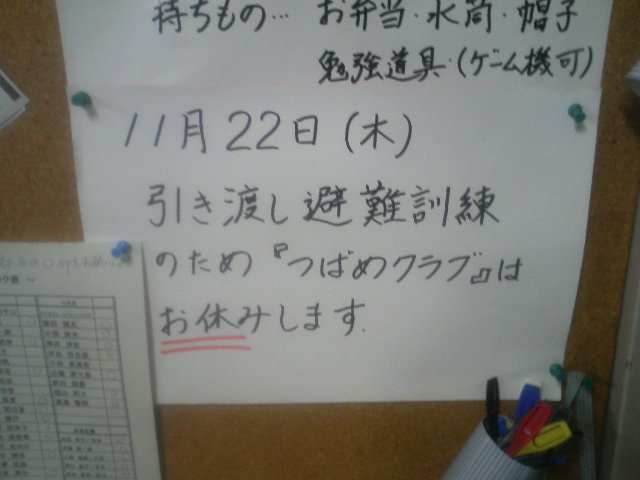 持ちもの… お弁当・水筒・帽子
勉強道具・(ゲーム機可)
11月22日(木)
引き渡し避難訓練
のため『つばめクラブ』は
お休みします.